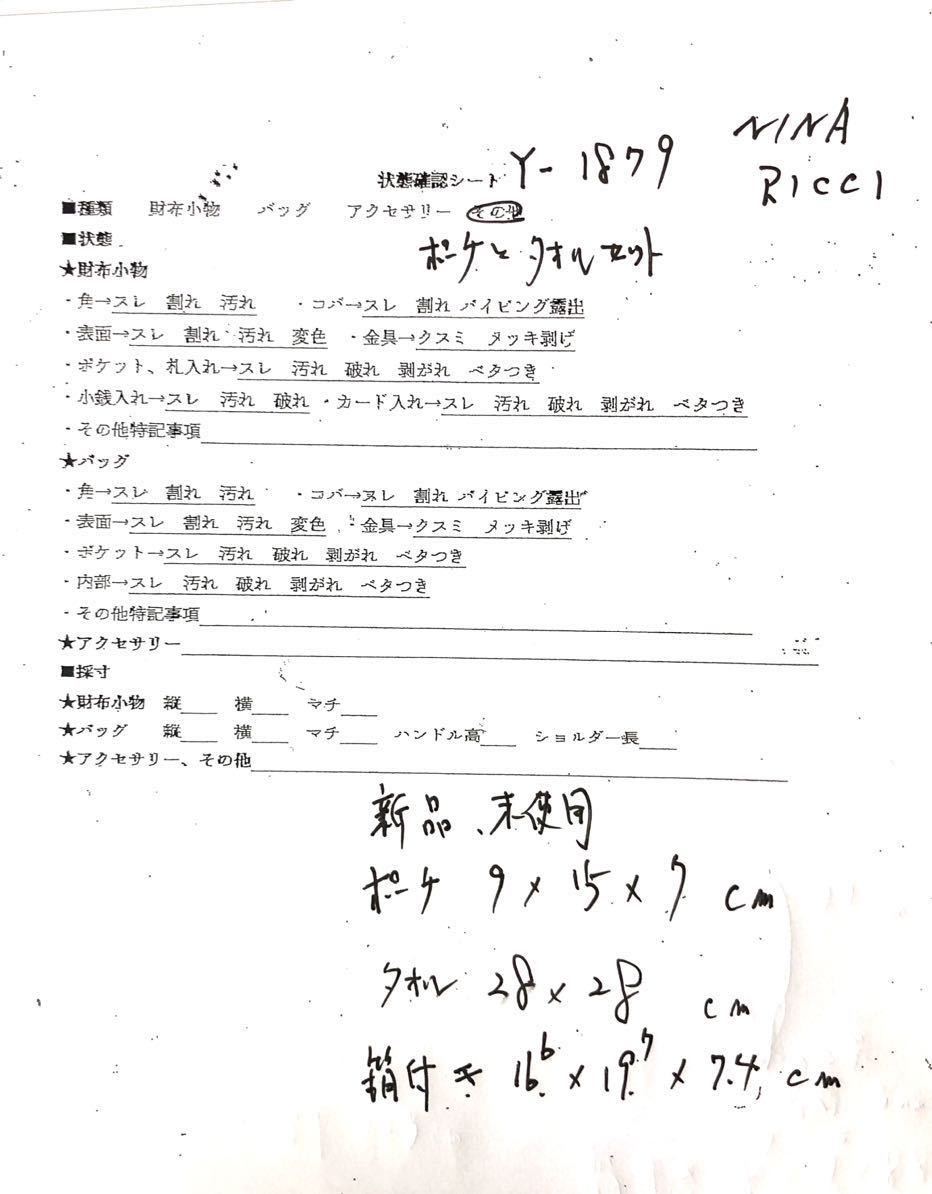 NINA
RICCI
状態確認シート Y-1879
■種類 財布小物 バッグ アクセサリー その他
■状態 ポーケとタオルセット
★財布小物
・角→スレ 割れ 汚れ ・コバ→スレ 割れ パイピング露出
・表面→スレ 割れ 汚れ 変色 ・金具→クスミ メッキ剥げ
・ポケット、札入れ→スレ 汚れ 破れ 剥がれ ベタつき
・小銭入れ→スレ 汚れ 破れ ・カード入れ→スレ 汚れ 破れ 剥がれ ベタつき
・その他特記事項
★バッグ
・角→スレ 割れ 汚れ ・コバ→スレ 割れ パイピング露出
・表面→スレ 割れ 汚れ 変色 ・金具→クスミ メッキ剥げ
・ポケット→スレ 汚れ 破れ 剥がれ ベタつき
・内部→スレ 汚れ 破れ 剥がれ ベタつき
・その他特記事項
★アクセサリー
■採寸
★財布小物 縦 横 マチ
★バッグ 縦 横 マチ ハンドル高 ショルダー長
★アクセサリー、その他
新品、未使用
ポーケ 9×15×7 cm
タオル 28×28 cm
箱付き 16.6×19.7×7.4 cm